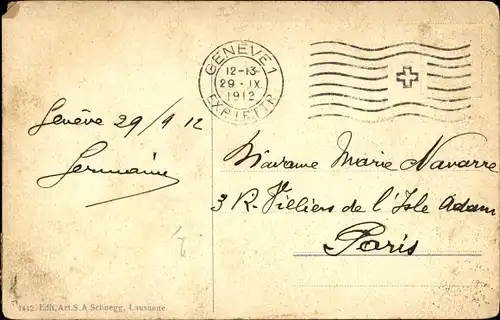 GENÈVE 1
12-13
29·IX.
1912
EXP. LETTR.
Genève 29/9 12
Germaine
Madame Marie Navarre
3 R. Villiers de l'Isle Adam
Paris
1412 Edit. Art. S. A. Schnegg, Lausanne